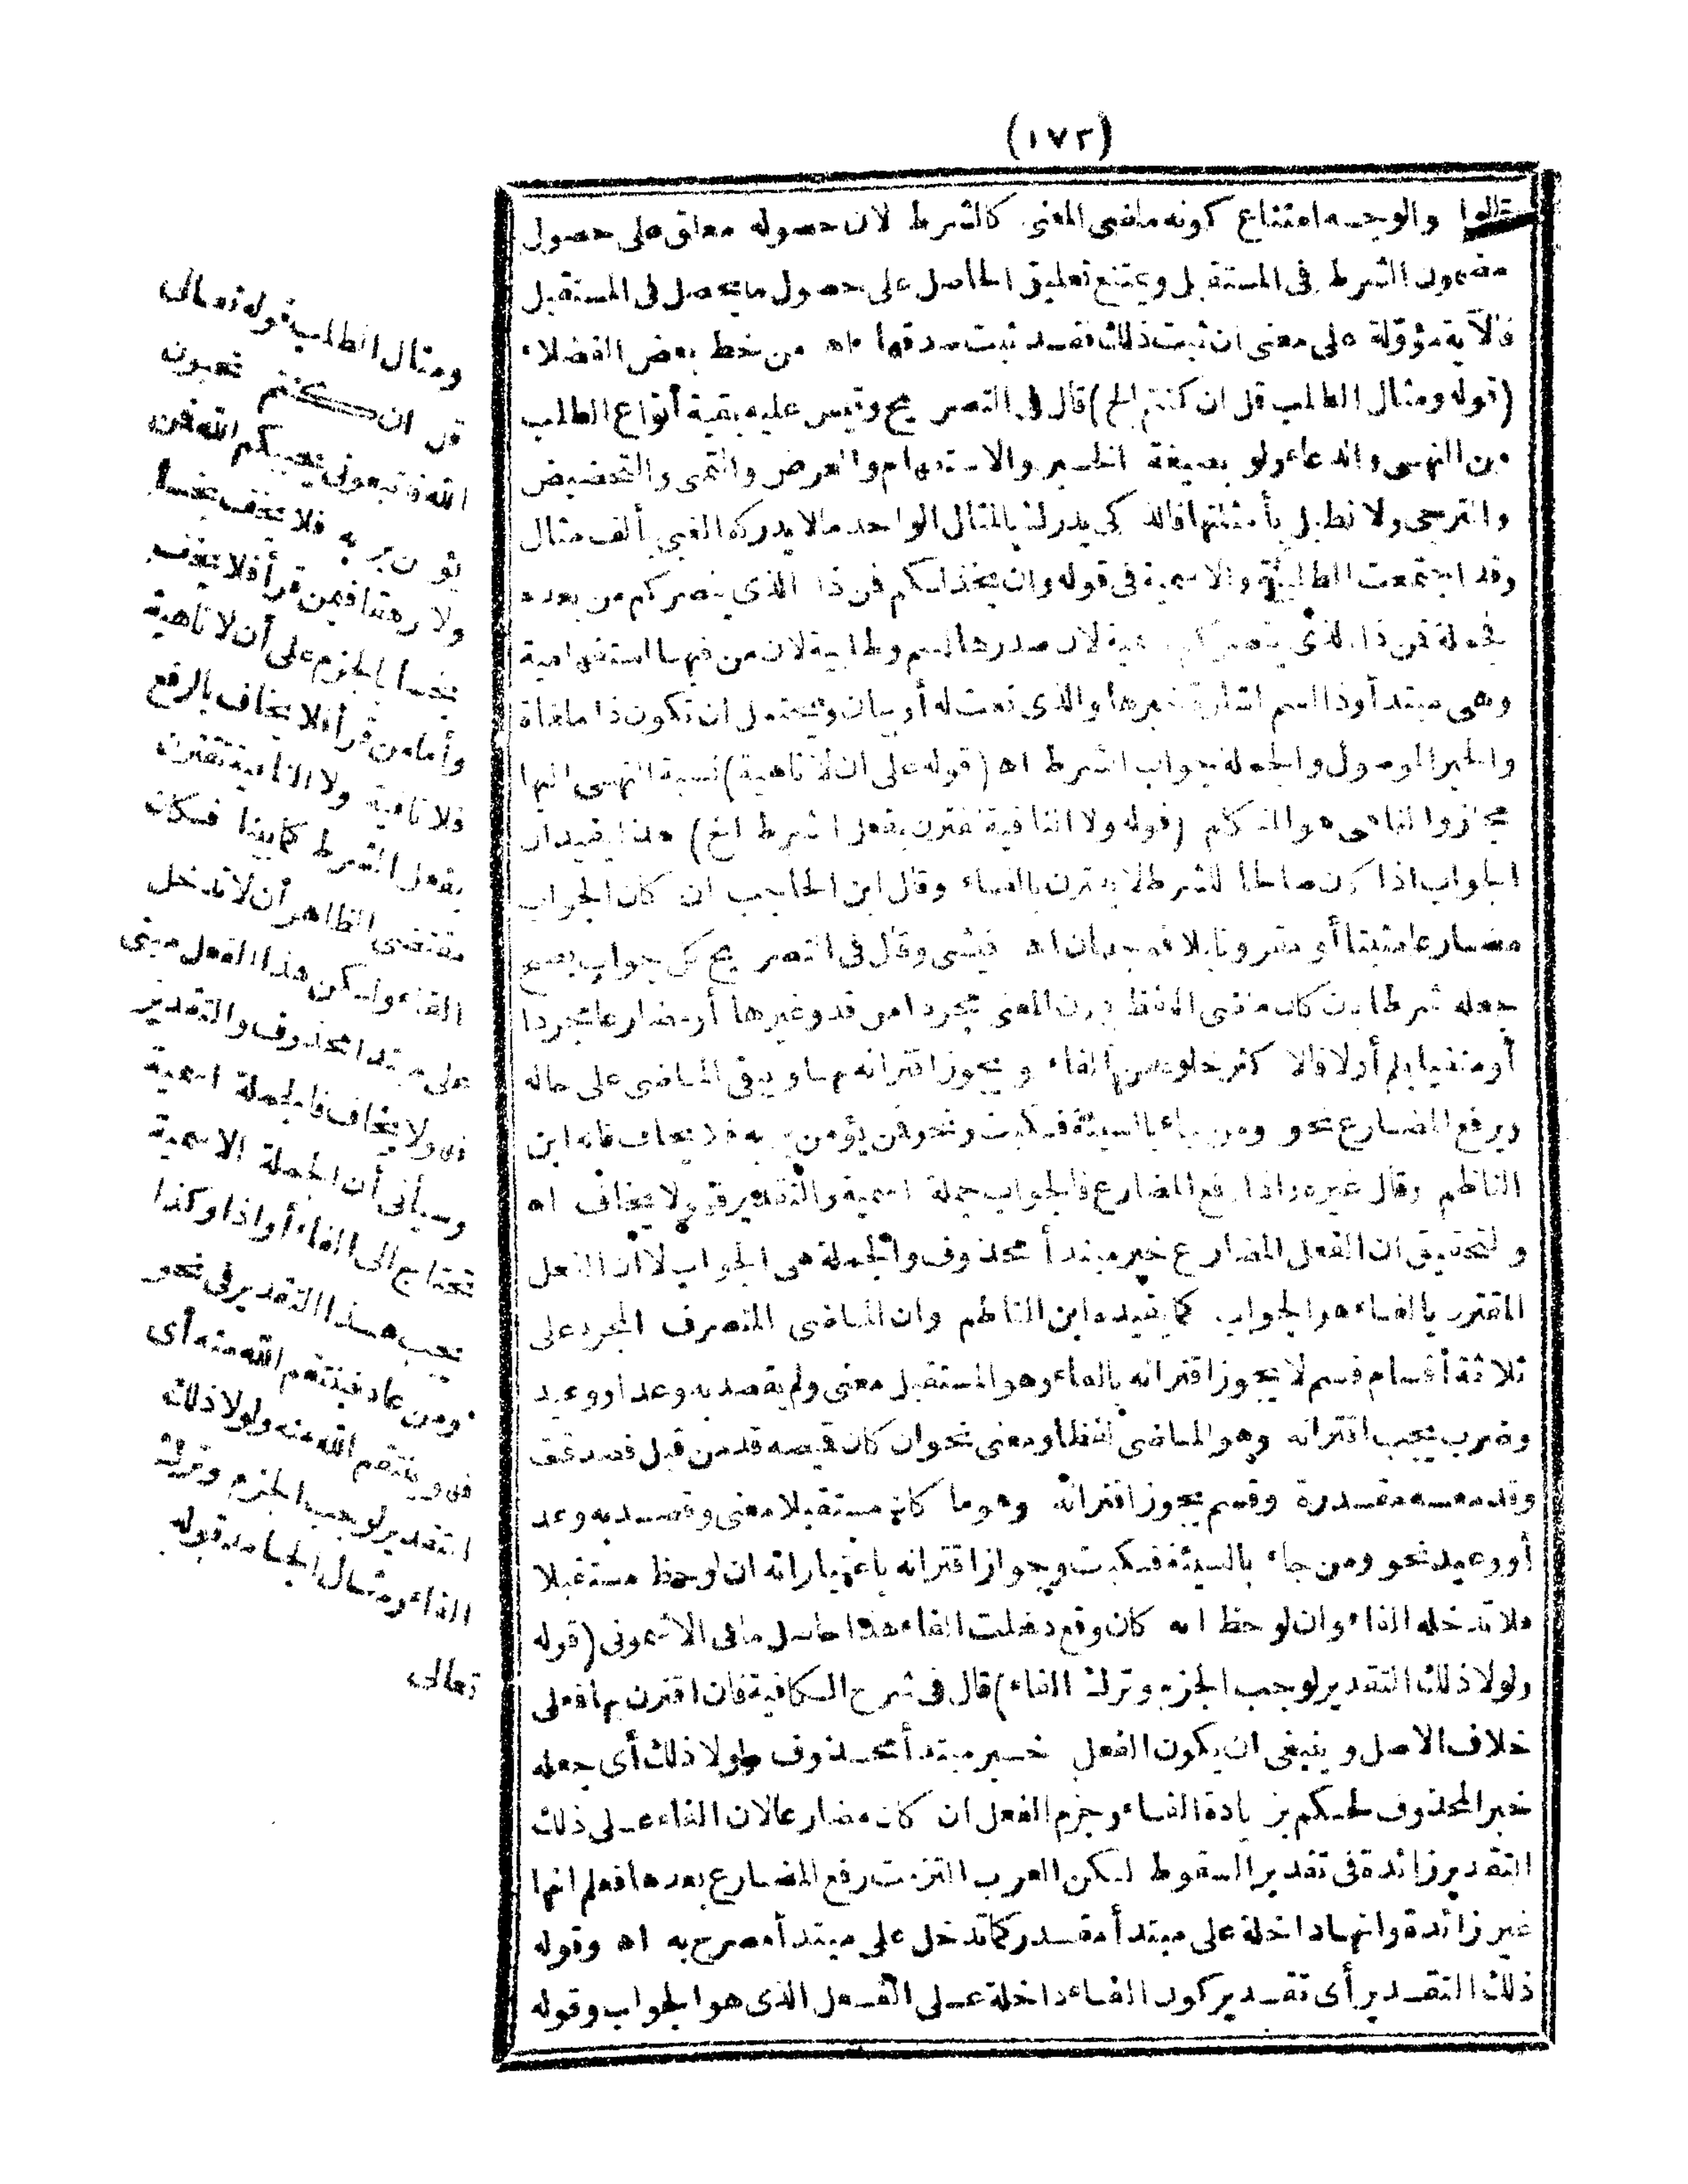 (١٧٣)
قالوا والوجه امتناع كونه ماضى المعنى كالشرط لان حصوله معلق على حصول
مضمون الشرط فى المستقبل ويمتنع تعليق الحاصل على حصول ما يحصل فى المستقبل
فالآية مؤوّلة على معنى ان ثبت ذلك فقد ثبت صدقها اه من خط بعض الفضلاء
(قوله ومثال الطلب قل ان كنتم الخ) قال فى التصريح وقيس عليه بقية أنواع الطلب
من النهى والدعاء ولو بصيغة الخبر والاستفهام والعرض والتمنى والتحضيض
والترجى ولا نطيل بأمثلتها فالذكى يدرك بالمثال الواحد ما لا يدركه الغبى بألف مثال
وقد اجتمعت الطلبية والاسمية فى قوله وان يخذلكم فمن ذا الذى ينصركم من بعده
فجملة فمن ذا الذى ينصركم اسمية لان صدرها اسم وطلبية لان من فيها استفهامية
وهى مبتدأ وذا اسم اشارة خبرها والذى نعت له أو بيان ويحتمل ان تكون ذا ملغاة
والخبر الموصول والجملة جواب الشرط اه (قوله على ان لا ناهية) نسبة النهى اليها
مجاز والناهى هو المتكلم (قوله ولا النافية تقترن بفعل الشرط الخ) هذا يفيد ان
الجواب اذا كان صالحا للشرط لا يقترن بالفاء وقال ابن الحاجب ان كان الجواب
مضارعا مثبتا أو مقرونا بلا فوجهان اه فيشى وقال فى التصريح كل جواب يصح
جعله شرطا بان كان ماضى اللفظ دون المعنى مجردا من قد وغيرها أو مضارعا مجردا
أو منفيا بلم أو لا فالاكثر خلوه من الفاء ويجوز اقترانه بها ويبقى الماضى على حاله
ويرفع المضارع نحو ومن جاء بالسيئة فكبت ونحو فمن يؤمن بربه فلا يخاف قاله ابن
الناظم وقال غيره واذا رفع المضارع فالجواب جملة اسمية والتقدير فهو لا يخاف اه
والتحقيق ان الفعل المضارع خبر مبتدأ محذوف والجملة هى الجواب لا ان الفعل
المقترن بالفاء هو الجواب كما يفيده ابن الناظم وان الماضى المتصرف المجرد على
ثلاثة أقسام قسم لا يجوز اقترانه بالفاء وهو المستقبل معنى ولم يقصد به وعد او وعيد
وضرب يجب اقترانه وهو الماضى لفظا ومعنى نحو ان كان قميصه قد من قبل فصدقت
وقد معه مقدرة وقسم يجوز اقترانه وهو ما كان مستقبلا معنى وقصد به وعد
أو وعيد نحو ومن جاء بالسيئة فكبت وجواز اقترانه باعتبار انه ان لوحظ مستقبلا
فلا تدخله الفاء وان لوحظ انه كان وقع دخلت الفاء هذا حاصل ما فى الاشمونى (قوله
ولولا ذلك التقدير لوجب الجزم وترك الفاء) قال فى شرح الكافية فان اقترن بها فعلى
خلاف الاصل وينبغى ان يكون الفعل خبر مبتدأ محذوف ولولا ذلك أى جعله
خبر المحذوف لحكم بزيادة الفاء وجزم الفعل ان كان مضارعا لان الفاء على ذلك
التقدير زائدة فى تقدير السقوط لكن العرب التزمت رفع المضارع بعدها فعلم انها
غير زائدة وانها داخلة على مبتدأ مقدر كما تدخل على مبتدأ مصرح به اه وقوله
ذلك التقدير أى تقدير كون الفاء داخلة على الفعل الذى هو الجواب وقوله
ومثال الطلب قوله تعالى
قل ان كنتم تحبون
الله فاتبعونى يحببكم الله فمن
يؤمن بربه فلا يخف بخسا
ولا رهقا فيمن قرأ فلا يخف
بخسا بالجزم على أن لا ناهية
وأما من قرأ فلا يخاف بالرفع
فلا نافية ولا النافية تقترن
بفعل الشرط كما بينا فكان
مقتضى الظاهر أن لا تدخل
الفاء ولكن هذا الفعل مبنى
على مبتدا محذوف والتقدير
فهو لا يخاف فالجملة اسمية
وسيأتى أن الجملة الاسمية
تحتاج الى الفاء أو اذا وكذا
يجب هذا التقدير فى نحو
ومن عاد فينتقم الله منه أى
فهو ينتقم الله منه ولولا ذلك
التقدير لوجب الجزم وترك
الفاء ومثال الجامد قوله
تعالى